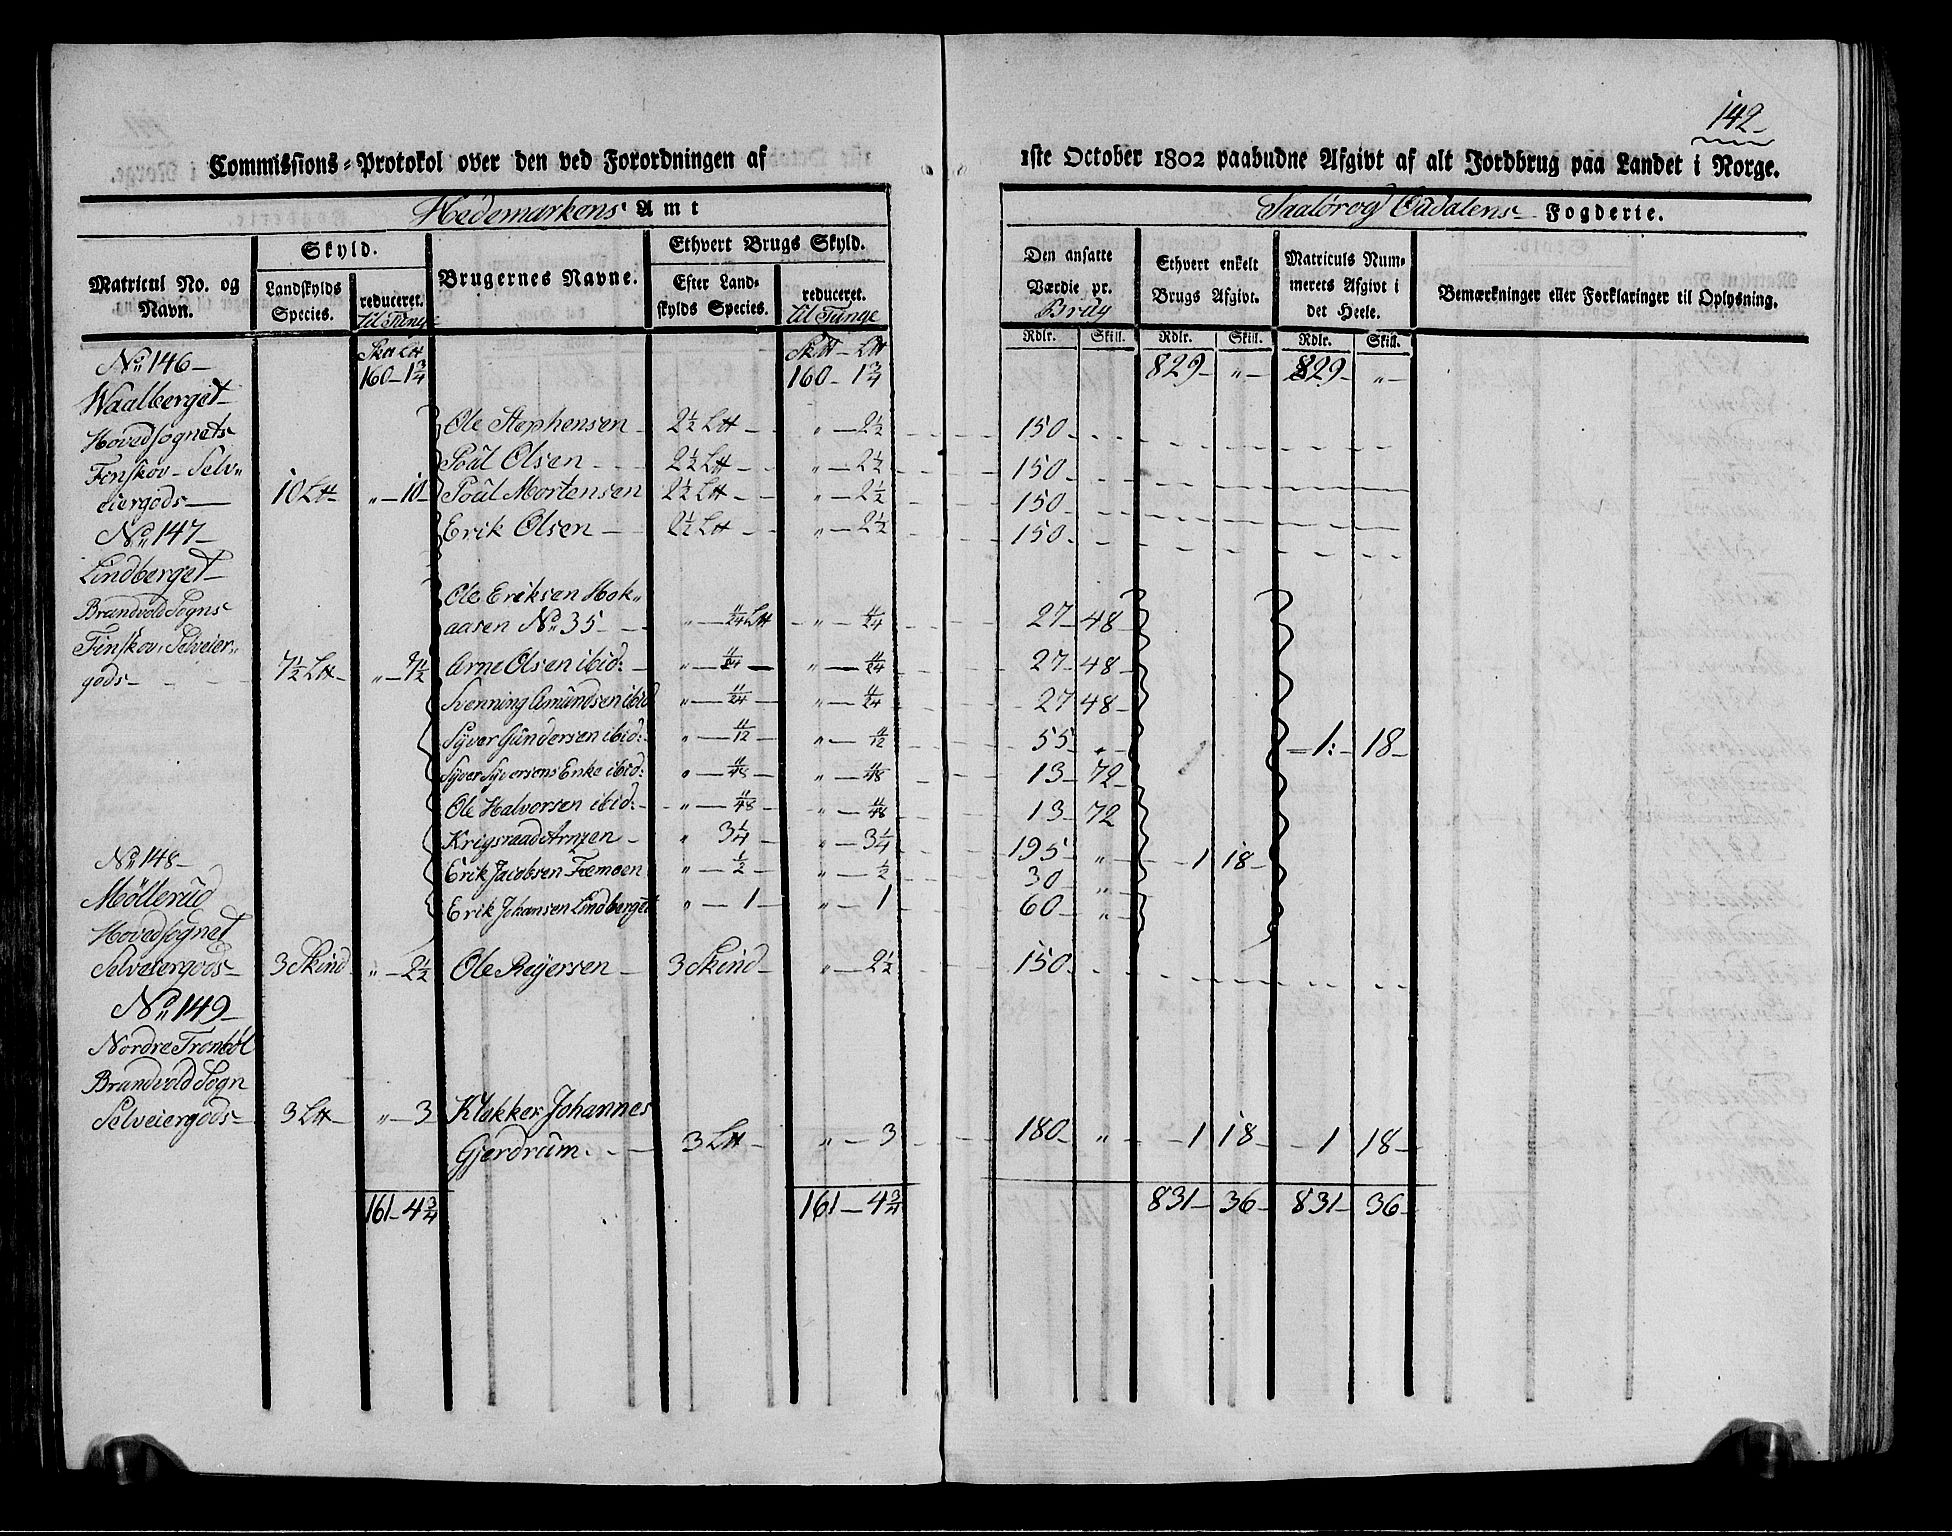 142
Commissions-Protokol over den ved Forordningen af 1ste October 1802 paabudne Afgivt af alt Jordbrug paa Landet i Norge.
Hedemarkens Amt
Soløer og Oudalens Fogderie.
Matricul No. og Navn.
Skyld.
Landskylds Species.
reduceret. til Tunge
Brugernes Navne.
Ethvert Brugs Skyld.
Efter Landskylds Species.
reduceret. til Tunge
Den ansatte Værdie pr. Brug
Ethvert enkelt Brugs Afgivt.
Matriculs Nummerets Afgivt i det Heele.
Bemærkninger eller Forklaringer til Oplysning.
Rdlr. Skill. Rdlr. Skill. Rdlr. Skill.
160 - 1 3/4 160 - 1 3/4 829 - „ - 829 - „ -
No 146 -
Waalberget -
Hovedsognets
Finskov - Selv„
eiergods - 10 L℔ „ - 10
Ole Stephensen - 2 1/2 L℔ - „ - 2 1/2 - 150
Poül Olsen - 2 1/2 L℔ - „ - 2 1/2 - 150
Poül Mortensen 2 1/2 L℔ - „ - 2 1/2 - 150
Erik Olsen - 2 1/2 L℔ - „ - 2 1/2 - 150
No 147 -
Lindberget -
Brandvold Sogns
Finskov, Selveier„
gods - 7 1/2 L℔ - „ - 7 1/2
Ole Eriksen Hok„
aasen No 35 - „ - 11/24 L℔ - „ - 11/24 27 - 48
Arne Olsen ibid: - „ - 11/24 - „ - 11/24 27 - 48
Svenning Amündsen ibid „ - 11/24 „ - 11/24 27 48
Syver Gündersen ibid: „ - 11/12 „ - 11/12 55 „ - 1: - 18 -
Syver Syversens Enke ibid: „ - 11/48 - „ - 11/48 13 - 72
Ole Halvorsen ibid: - „ - 11/48 - „ - 11/48 13 - 72
Krigsraad Arntzen - „ 3 1/4 - „ - 3 1/4 195 „ - 1 18 -
Erik Jacobsen „ - 1/2 - „ - 1/2 30 „
Erik Johansen Lindberget „ - 1 - „ - 1 60 „
No 148 -
Möllerüd
Hovedsognet
Selveiergods - 3 Skind „ - 2 1/2 Ole Reyersen - 3 Skind - „ - 2 1/2 150
No 149 -
Nordre Trombøl
Brandvold Sogn
Selveiergods - 3 L℔ - „ - 3 Klokker Johannes
Gjerdrüm - 3 L℔ - „ - 3 180 - „ - 1 18 - 1 18 -
161 - 4 3/4 161 - 4 3/4 831 - 36 - 831 - 36 -